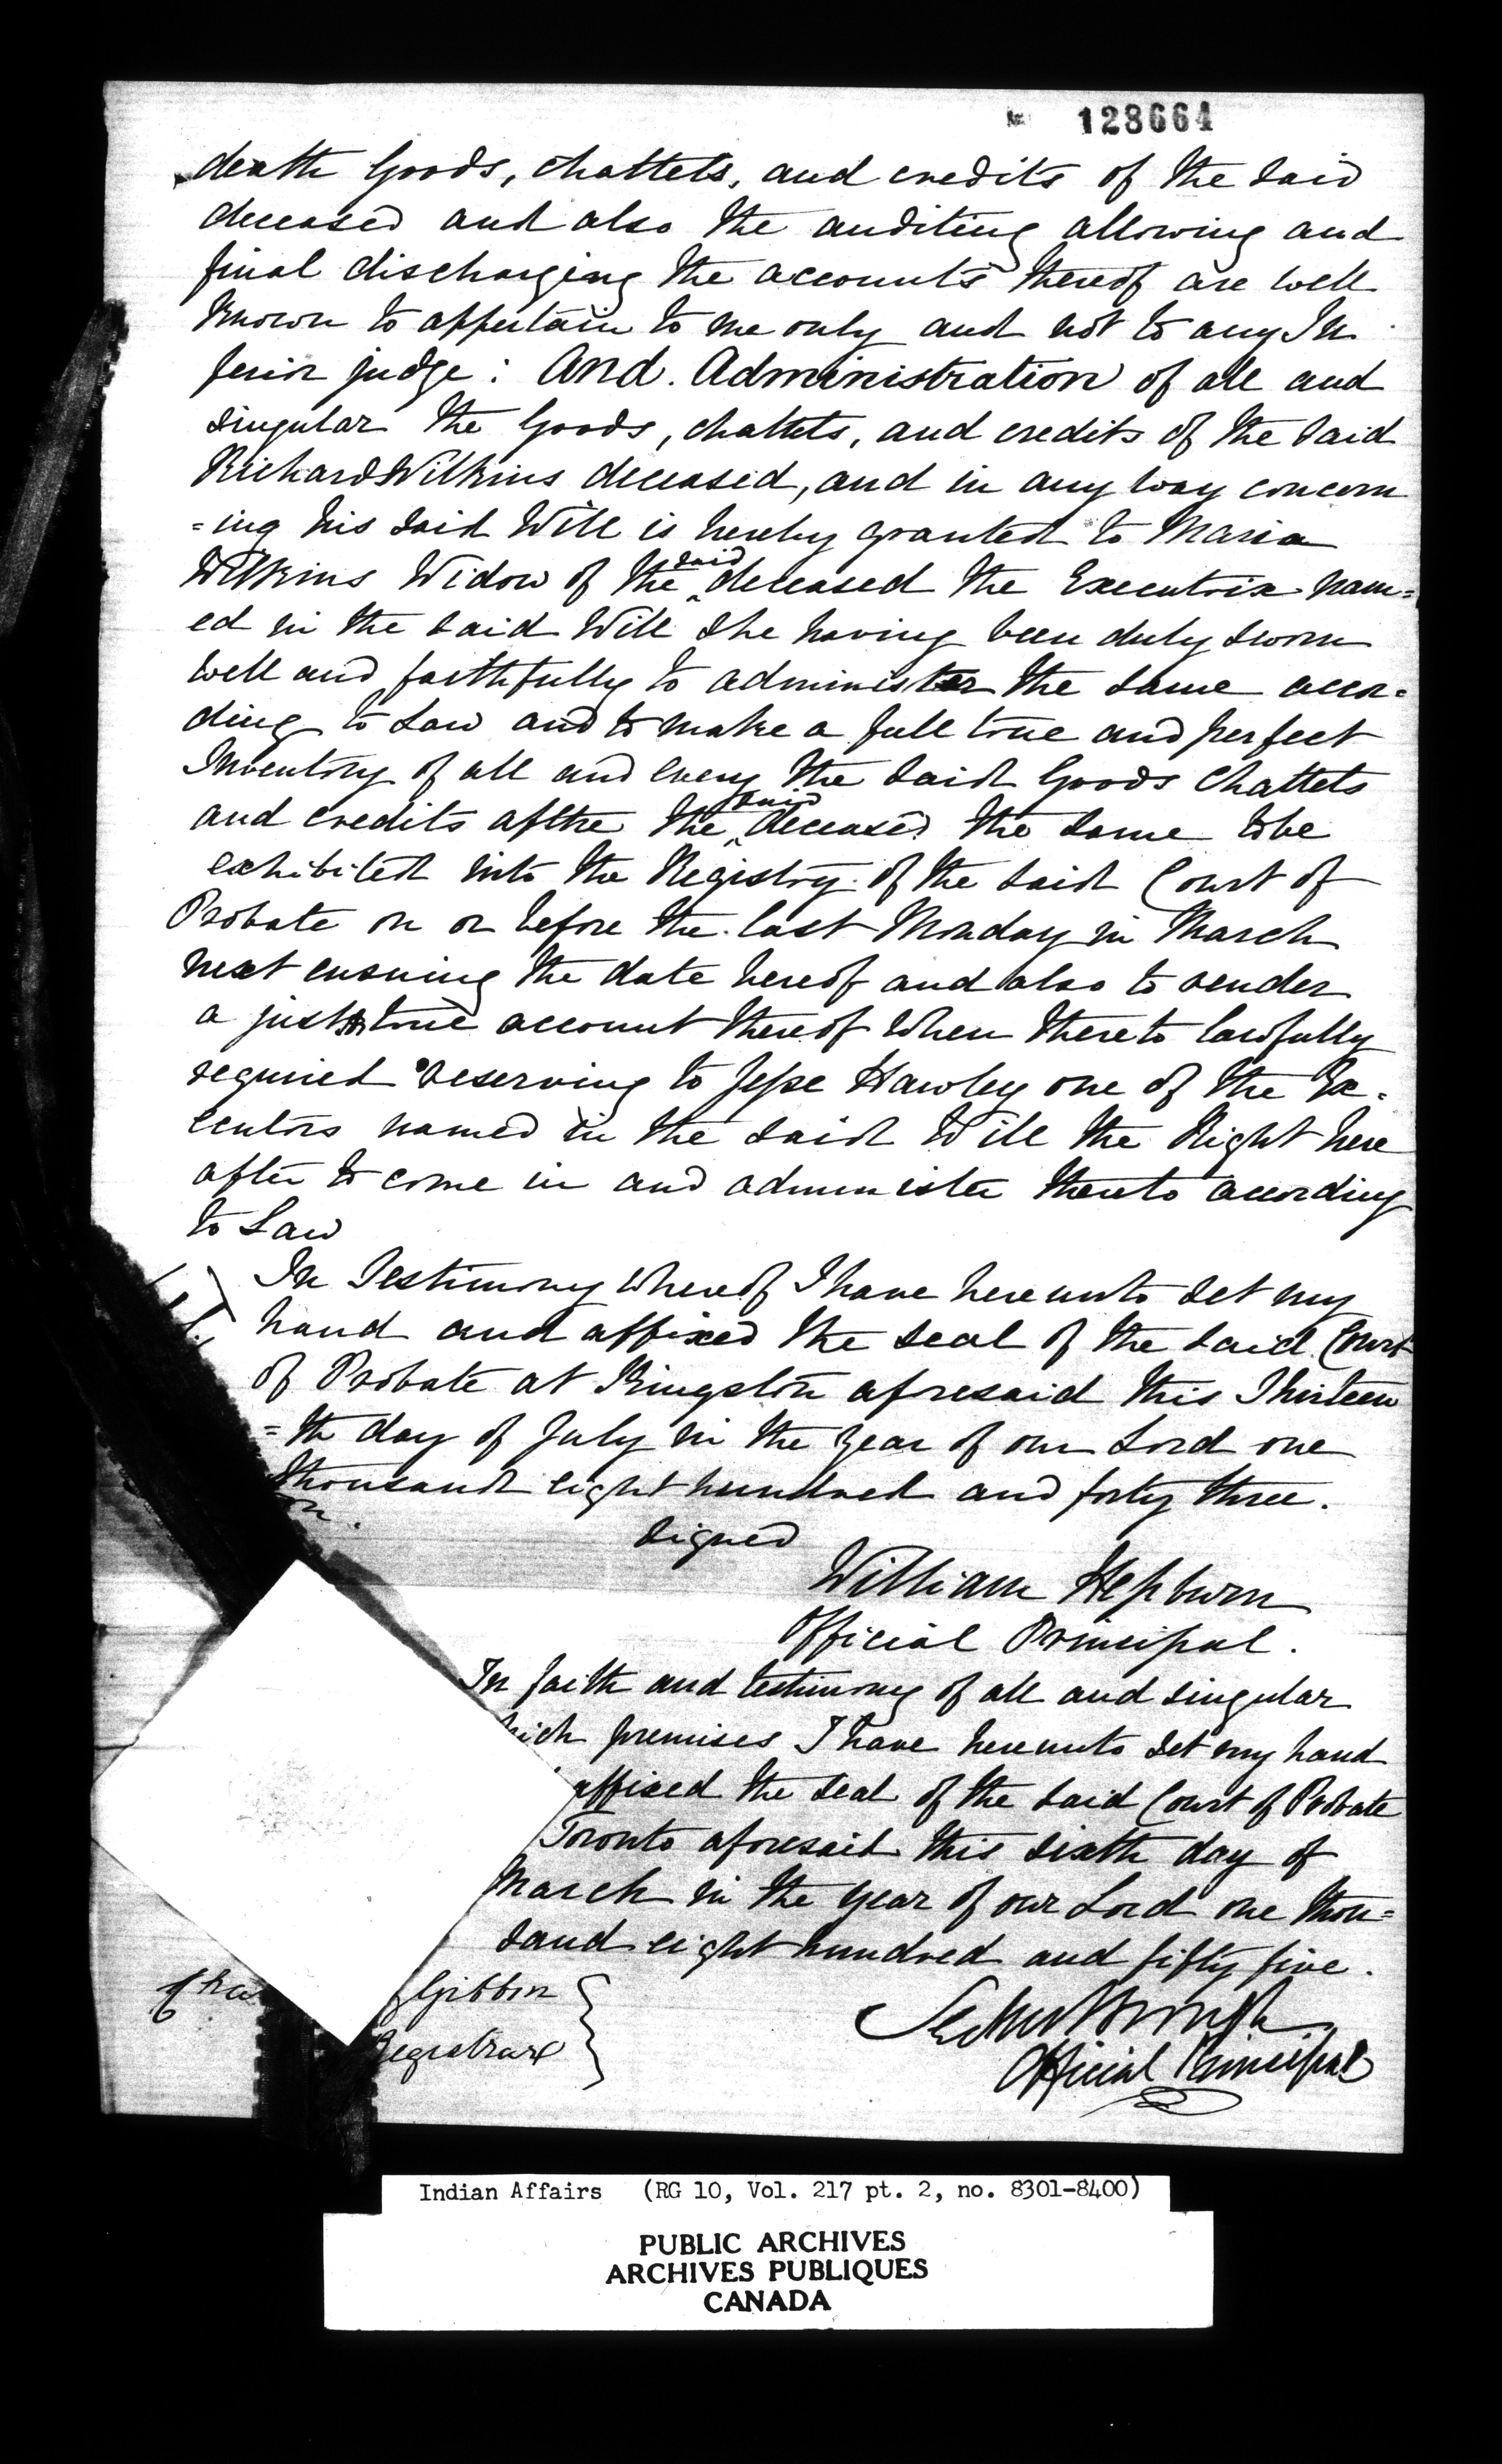 128664
death Goods, chattels, and credits of the said
deceased and also the auditing allowing and
final discharging the accounts thereof are well
Known to appertain to me only and not to any In
ferior judge: And. Administration of all and
singular the Goods, chattels, and credits of the said
Richard Wilkins deceased, and in any way concern
=ing his said Will is hereby granted to Maria
Wilkins Widow of the said deceased the Executrix nam=
ed in the said Will She having been duly sworn
well and faithfully to administer the same accor=
ding to Law and to make a full true and perfect
Inventory of all and every the said Goods Chattels
and credits aftre the said deceased the same to be
exhibited into the Registry of the said Court of
Probate on or before the last Monday in March
next ensuing the date hereof and also to render
a just true account thereof when thereto lawfully
required reserving to Jesse Hawley one of the Ex=
ecutors named in the said Will the Right here
after to come in and administer thereto according
to Law
In Testimony whereof I have hereunto set my
hand and affixed the seal of the said Court
of Probate at Kingston aforesaid this Thirteen
=th day of July in the year of our Lord one
thousand eight hundred and forty three.
signed
William Hepburn
Official Principal.
In faith and testimony of all and singular
hich premises I have hereunto set my hand
affixed the seal of the said Court of Probate
Toronto aforesaid this sixth day of
March in the year of our Lord one thou=
sand eight hundred and fifty five.
Cha Gibbon
Registrar
Official Principal
Indian Affairs (RG 10, Vol. 217 pt. 2, no. 8301-8400)
PUBLIC ARCHIVES
ARCHIVES PUBLIQUES
CANADA